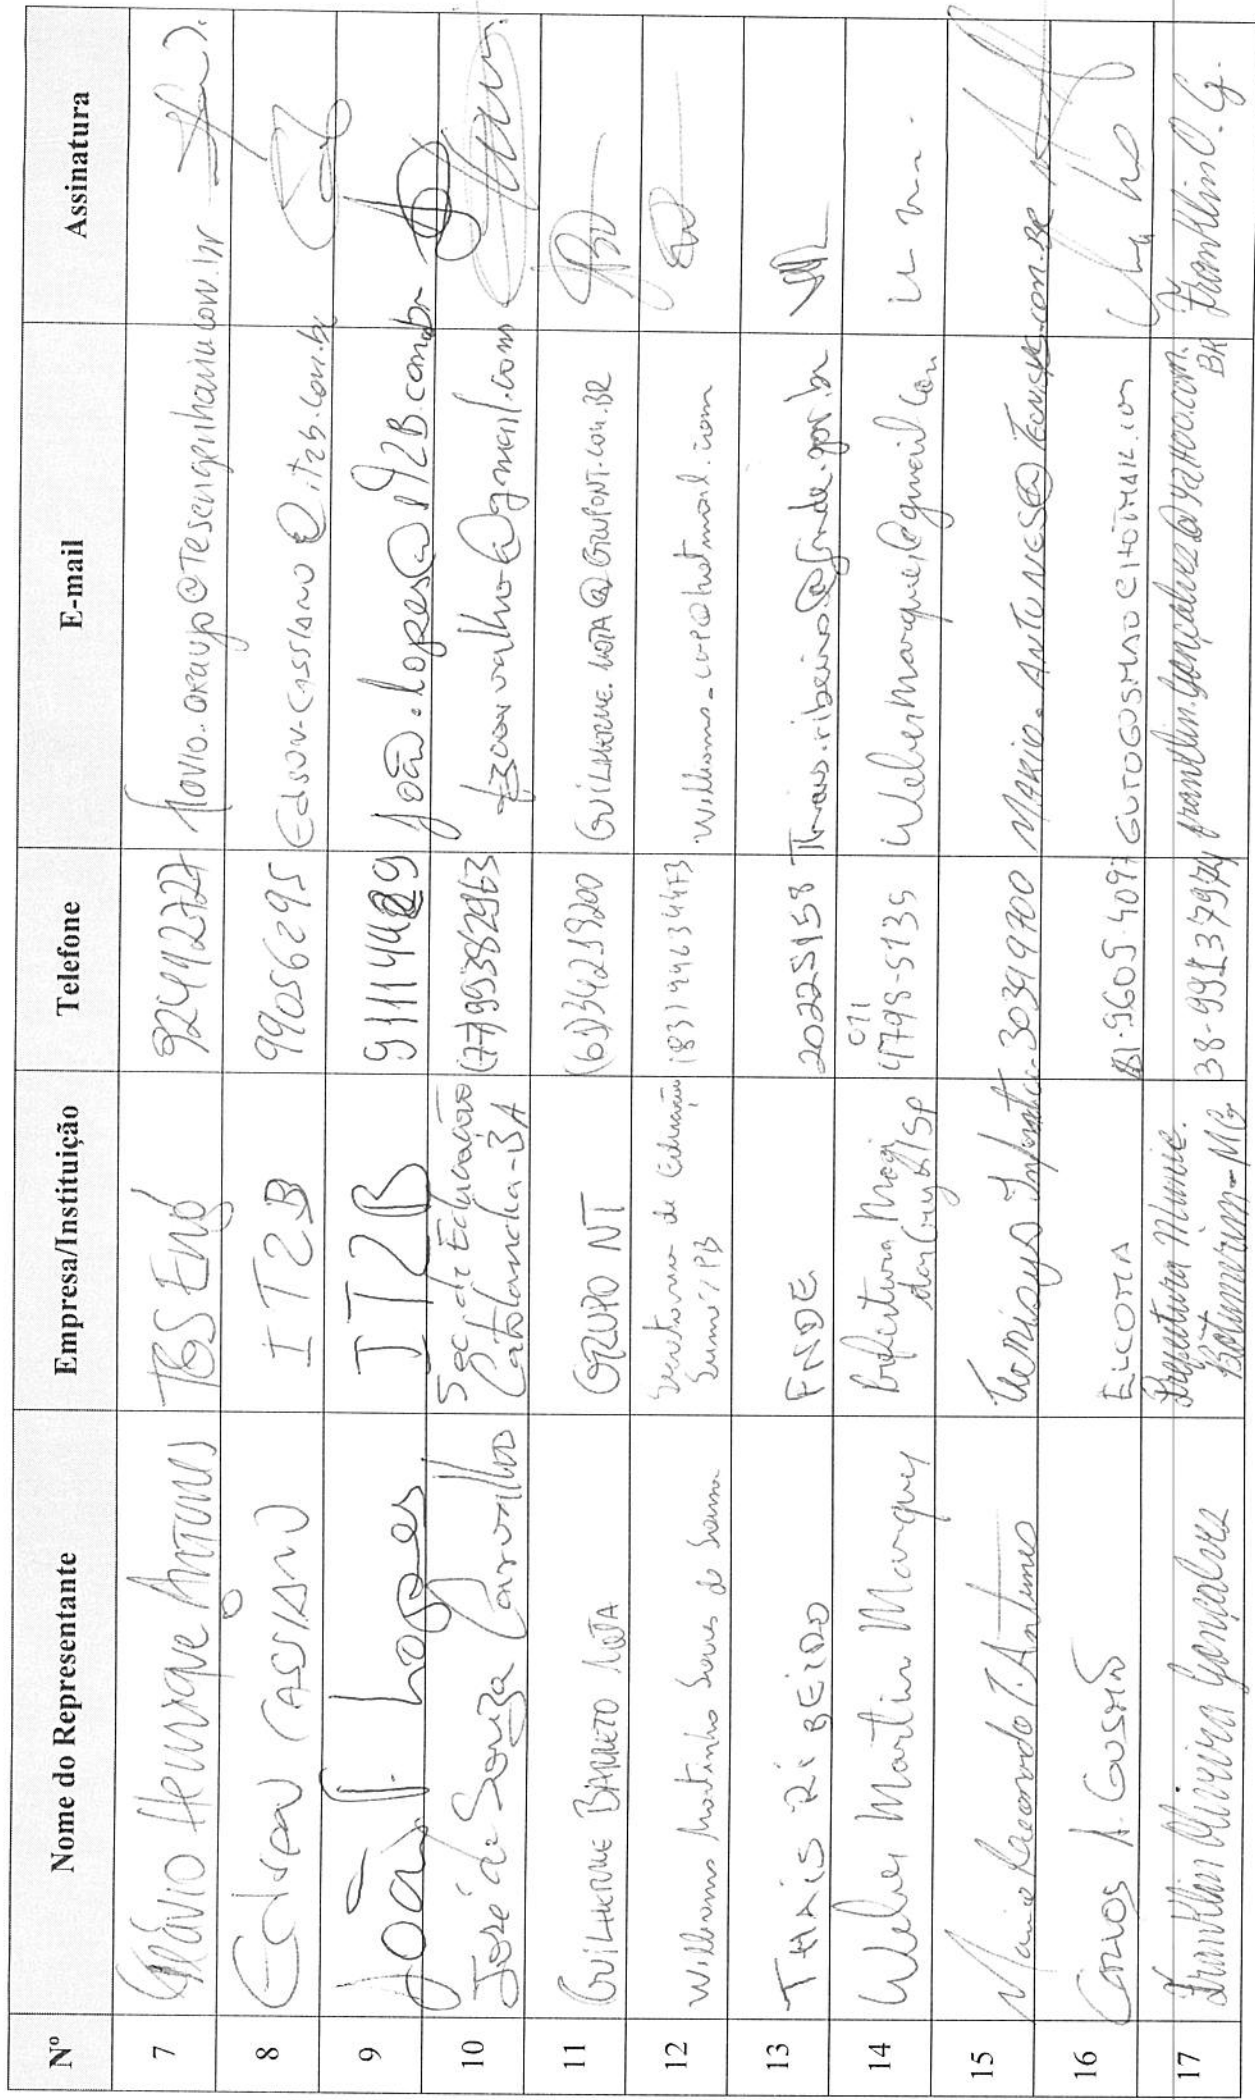 Nº Nome do Representante Empresa/Instituição Telefone E-mail Assinatura
7 Flávio Henrique Antunes TGS Eng 92442727 flavio.araujo@tesengenharia.com.br
8 Edson Cassiano IT2B 99056295 Edson.Cassiano@it2b.com.br
9 João P. Lopes IT2B joão.lopes@it2B.com.br
10 José de Souza Carvalho Sec. de Educação (77)99382963 @gmail.com
Catolandia-BA
11 Guilherme Barreto Mota Grupo NT (61)34219200 Guilherme.Mota@Grupont.com.br
12 Williams Martinho Soares de Sousa Secretaria de Educação (83)
Sumé/PB
13 THAÍS RIBEIRO FNDE 20225158 Thais.ribeiro@fnde.gov.br
14 Weber Martins Marques Prefeitura Mogi 011
das Cruzes/SP 4798-5135 Webermarques@gmail.com
15 T. Antunes Tecnisys Informática 30399700 MARIO.ANTUNES@TECNISYS.COM.BR
16 Carlos A. Gusmão ELCOMA 81-9605.4097 GUTOGUSMAO@HOTMAIL.COM
17 Franklin Oliveira Gonçalves Prefeitura Munic. 38-99137974 franklin.gonçalves@yahoo.com. Franklin O. G.
Botumirim-MG BR